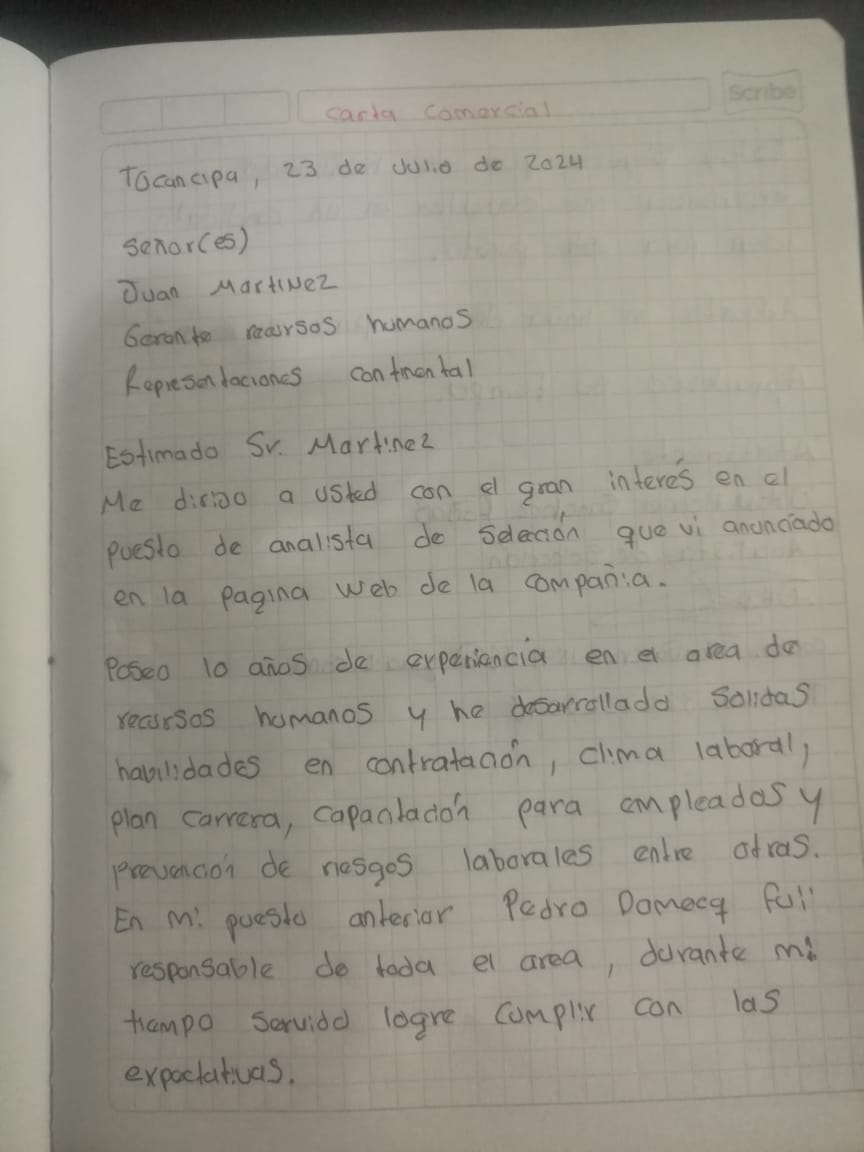 Scribe
Carta Comercial
Tocancipa, 23 de Julio de 2024
Señor(es)
Juan Martinez
Gerente recursos humanos
Representaciones continental
Estimado Sr. Martinez
Me dirijo a usted con el gran interés en el
puesto de analista de Selección que vi anunciado
en la pagina web de la compañia.
Poseo 10 años de experiencia en el area de
recursos humanos y he desarrollado Solidas
habilidades en contratación, clima laboral,
plan carrera, capacitación para empleados y
prevención de riesgos laborales entre otras.
En mi puesto anterior Pedro Domecq fuí
responsable de toda el area, durante mi
tiempo servido logre cumplir con las
expectativas.